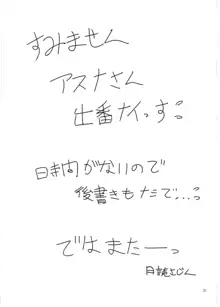 すみません
アスナさん
出番ナイっす
時間がないので
後書きもたで…
ではまたーっ